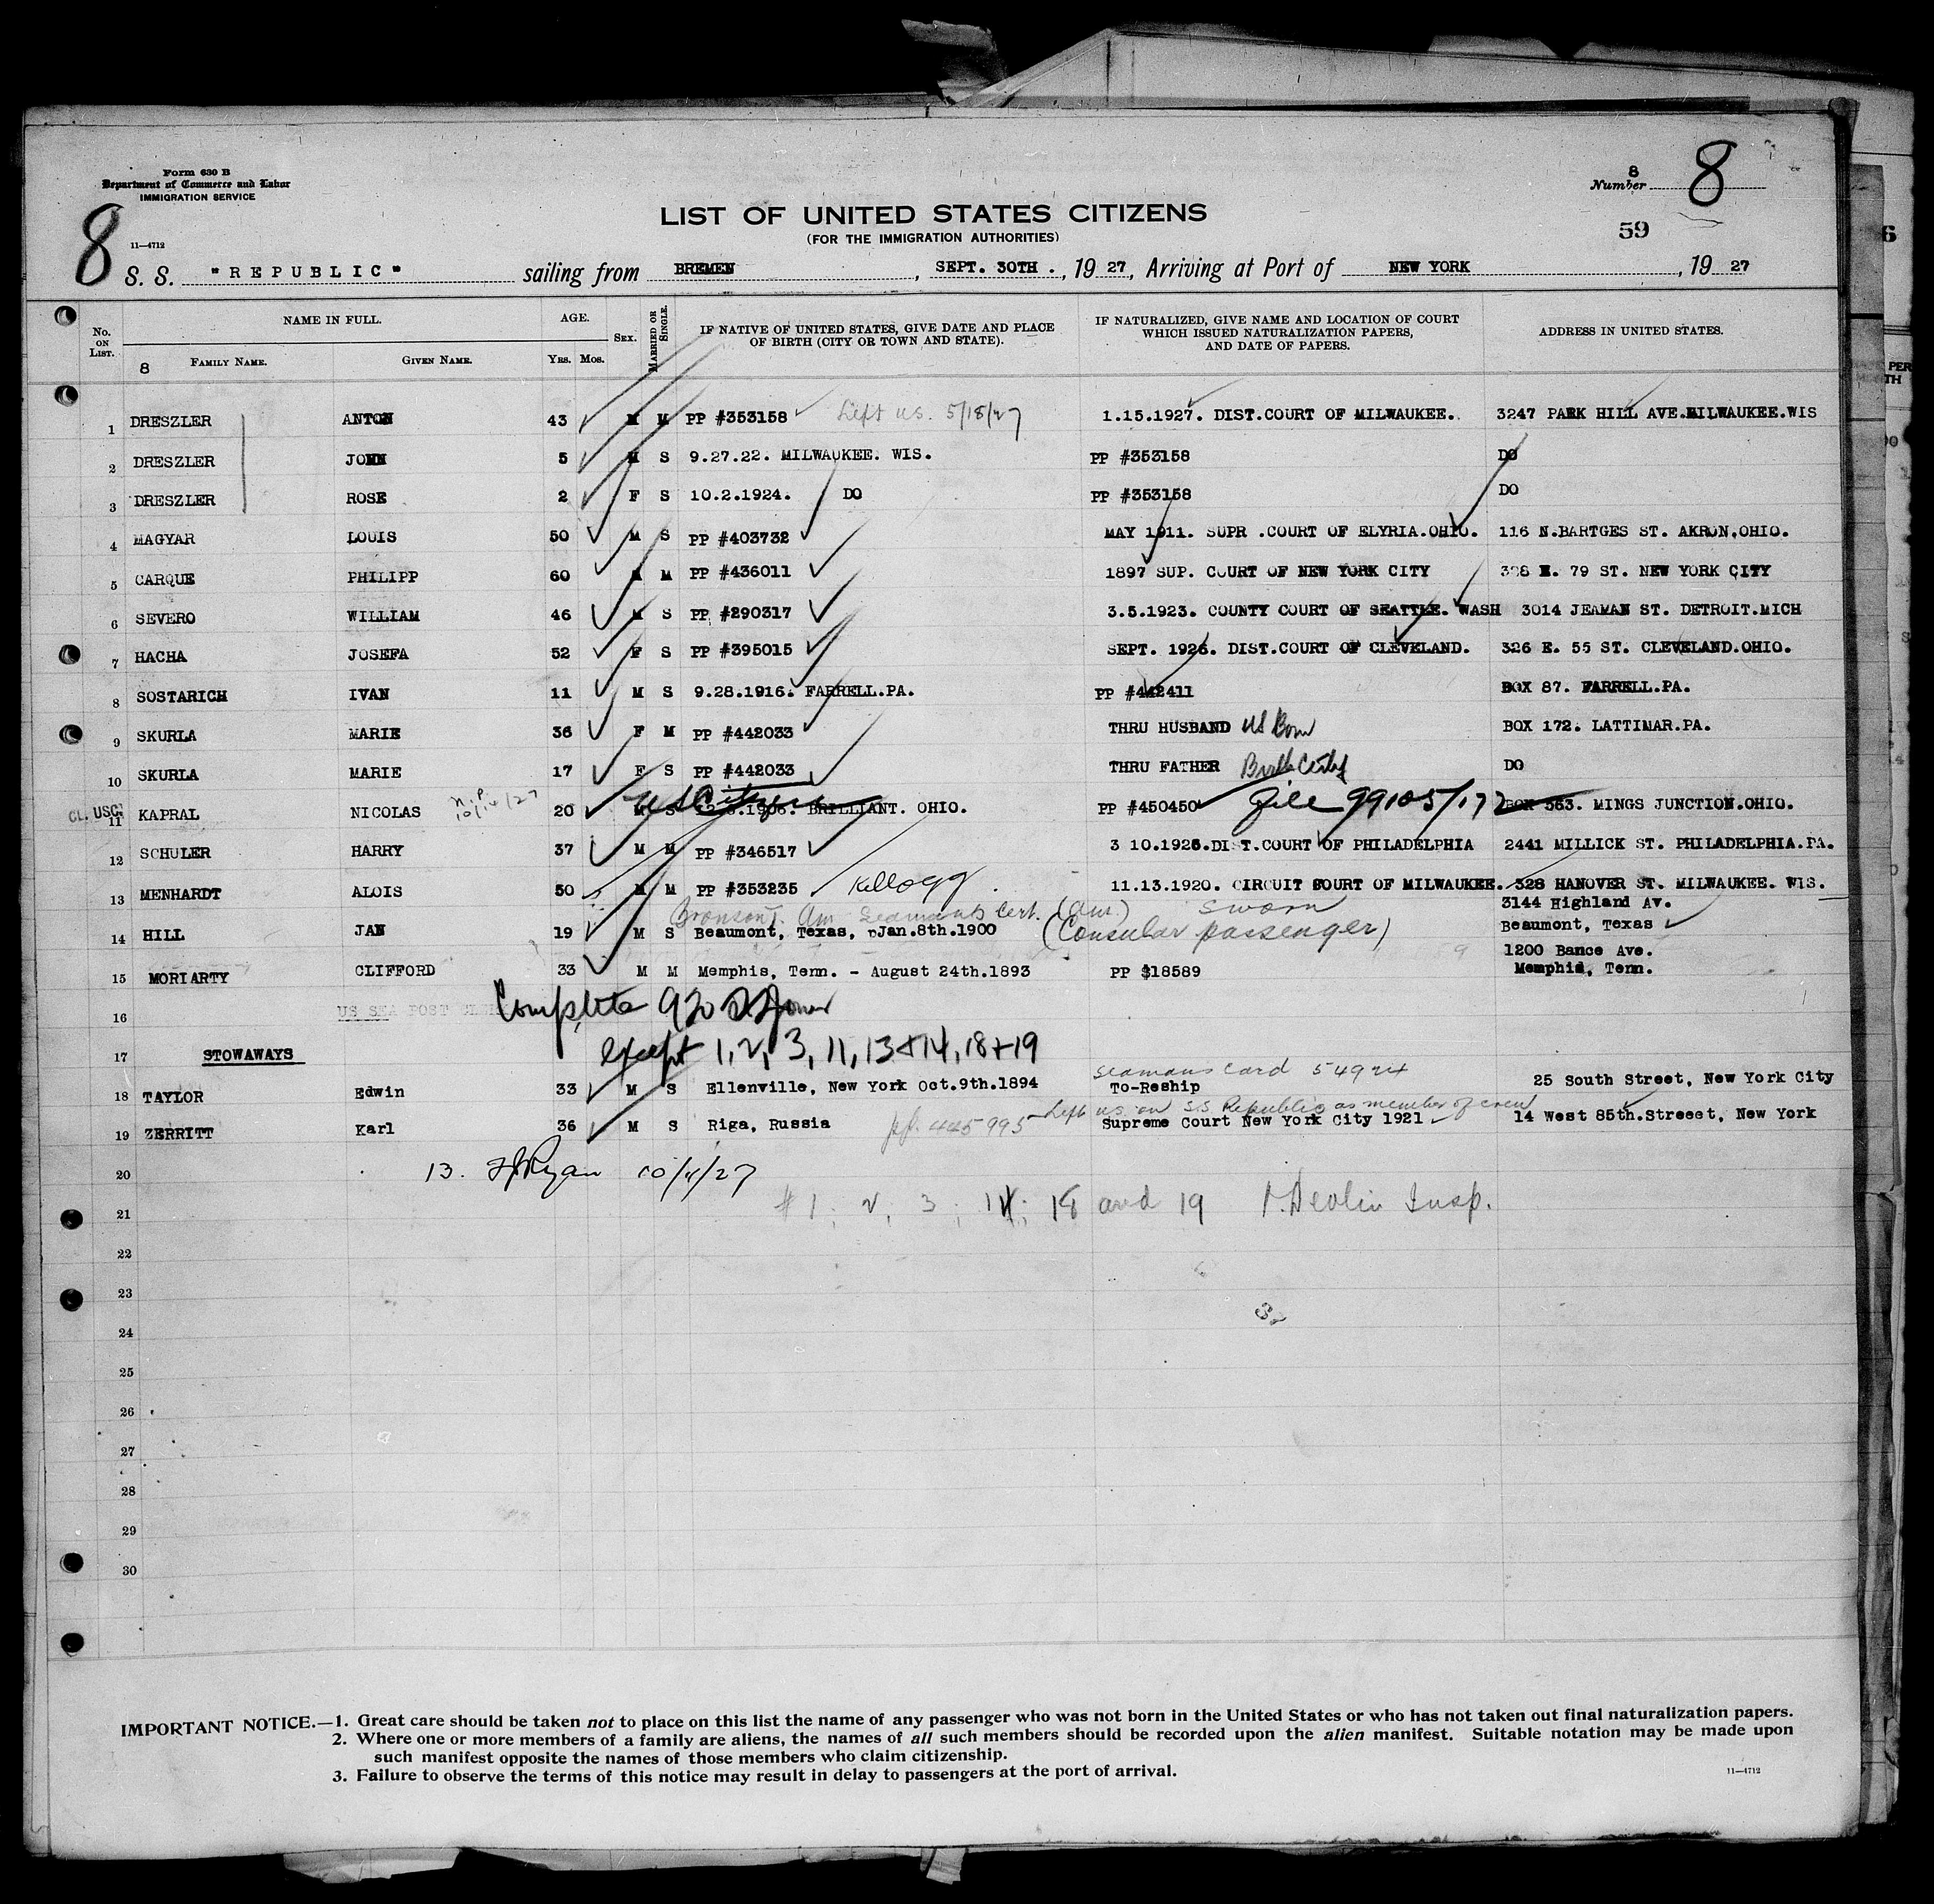 Form 630 B
Department of Commerce and Labor
IMMIGRATION SERVICE
11—4712
8
8
Number 8
59
LIST OF UNITED STATES CITIZENS
(FOR THE IMMIGRATION AUTHORITIES)
S. S. "REPUBLIC" sailing from BREMEN, SEPT. 30TH ., 19 27, Arriving at Port of NEW YORK, 19 27
No. ON LIST. NAME IN FULL. AGE. SEX. MARRIED OR SINGLE. IF NATIVE OF UNITED STATES, GIVE DATE AND PLACE OF BIRTH (CITY OR TOWN AND STATE). IF NATURALIZED, GIVE NAME AND LOCATION OF COURT WHICH ISSUED NATURALIZATION PAPERS, AND DATE OF PAPERS. ADDRESS IN UNITED STATES.
8 FAMILY NAME. GIVEN NAME. YRS. MOS.
1 DRESZLER ANTON 43 M M PP #353158 Left US. 5/18/27 1.15.1927. DIST.COURT OF MILWAUKEE. 3247 PARK HILL AVE.MILWAUKEE.WIS
2 DRESZLER JOHN 5 M S 9.27.22. MILWAUKEE. WIS. PP #353158 DO
3 DRESZLER ROSE 2 F S 10.2.1924. DO PP #353158 DO
4 MAGYAR LOUIS 50 M S PP #403732 MAY 1911. SUPR .COURT OF ELYRIA.OHIO. 116 N.BARTGES ST. AKRON,OHIO.
5 CARQUE PHILIPP 60 M M PP #436011 1897 SUP. COURT OF NEW YORK CITY 328 E. 79 ST. NEW YORK CITY
6 SEVERO WILLIAM 46 M S PP #290317 3.5.1923. COUNTY COURT OF SEATTLE. WASH 3014 JEAMAN ST. DETROIT.MICH
7 HACHA JOSEFA 52 F S PP #395015 SEPT. 1926. DIST.COURT OF CLEVELAND. 326 E. 55 ST. CLEVELAND.OHIO.
8 SOSTARICH IVAN 11 M S 9.28.1916. FARRELL.PA. PP #442411 BOX 87. FARRELL.PA.
9 SKURLA MARIE 36 F M PP #442033 THRU HUSBAND US Born BOX 172. LATTIMAR.PA.
10 SKURLA MARIE 17 F S PP #442033 THRU FATHER Birth Certif DO
CL. USC. 11 KAPRAL NICOLAS N.P. 10/14/27 20 M S US Citizen BRILLIANT. OHIO. PP #450450 File 99105/172 BOX 563. MINGS JUNCTION.OHIO.
12 SCHULER HARRY 37 M M PP #346517 3 10.1926.DIST.COURT OF PHILADELPHIA 2441 MILLICK ST. PHILADELPHIA.PA.
13 MENHARDT ALOIS 50 M M PP #353235 Kellogg 11.13.1920. CIRCUIT COURT OF MILWAUKEE. 328 HANOVER ST. MILWAUKEE. WIS.
Am Seamans Cert. (Am.) sworn 3144 Highland Av.
14 HILL JAN 19 M S Beaumont, Texas, Jan.8th.1900 (Consular passenger) Beaumont, Texas
1200 Bance Ave.
15 MORIARTY CLIFFORD 33 M M Memphis, Tenn. - August 24th.1893 PP $18589 Memphis, Tenn.
16 US SEA POST Complete 920
17 STOWAWAYS except 1, 2, 3, 11, 13+14, 18+19
Seamans Card 54924
18 TAYLOR Edwin 33 M S Ellenville, New York Oct.9th.1894 To-Reship 25 South Street, New York City
Left US on SS Republic as member of crew
19 ZERRITT Karl 36 M S Riga, Russia pp. 445995 Supreme Court New York City 1921 14 West 85th.Streeet, New York
20 13. Ryan 10/11/27
21 #1, 2, 3, 14, 18 and 19 Devlin Insp.
22
23
24
25
26
27
28
29
30
IMPORTANT NOTICE.—1. Great care should be taken not to place on this list the name of any passenger who was not born in the United States or who has not taken out final naturalization papers.
2. Where one or more members of a family are aliens, the names of all such members should be recorded upon the alien manifest. Suitable notation may be made upon
such manifest opposite the names of those members who claim citizenship.
3. Failure to observe the terms of this notice may result in delay to passengers at the port of arrival.
11—4712